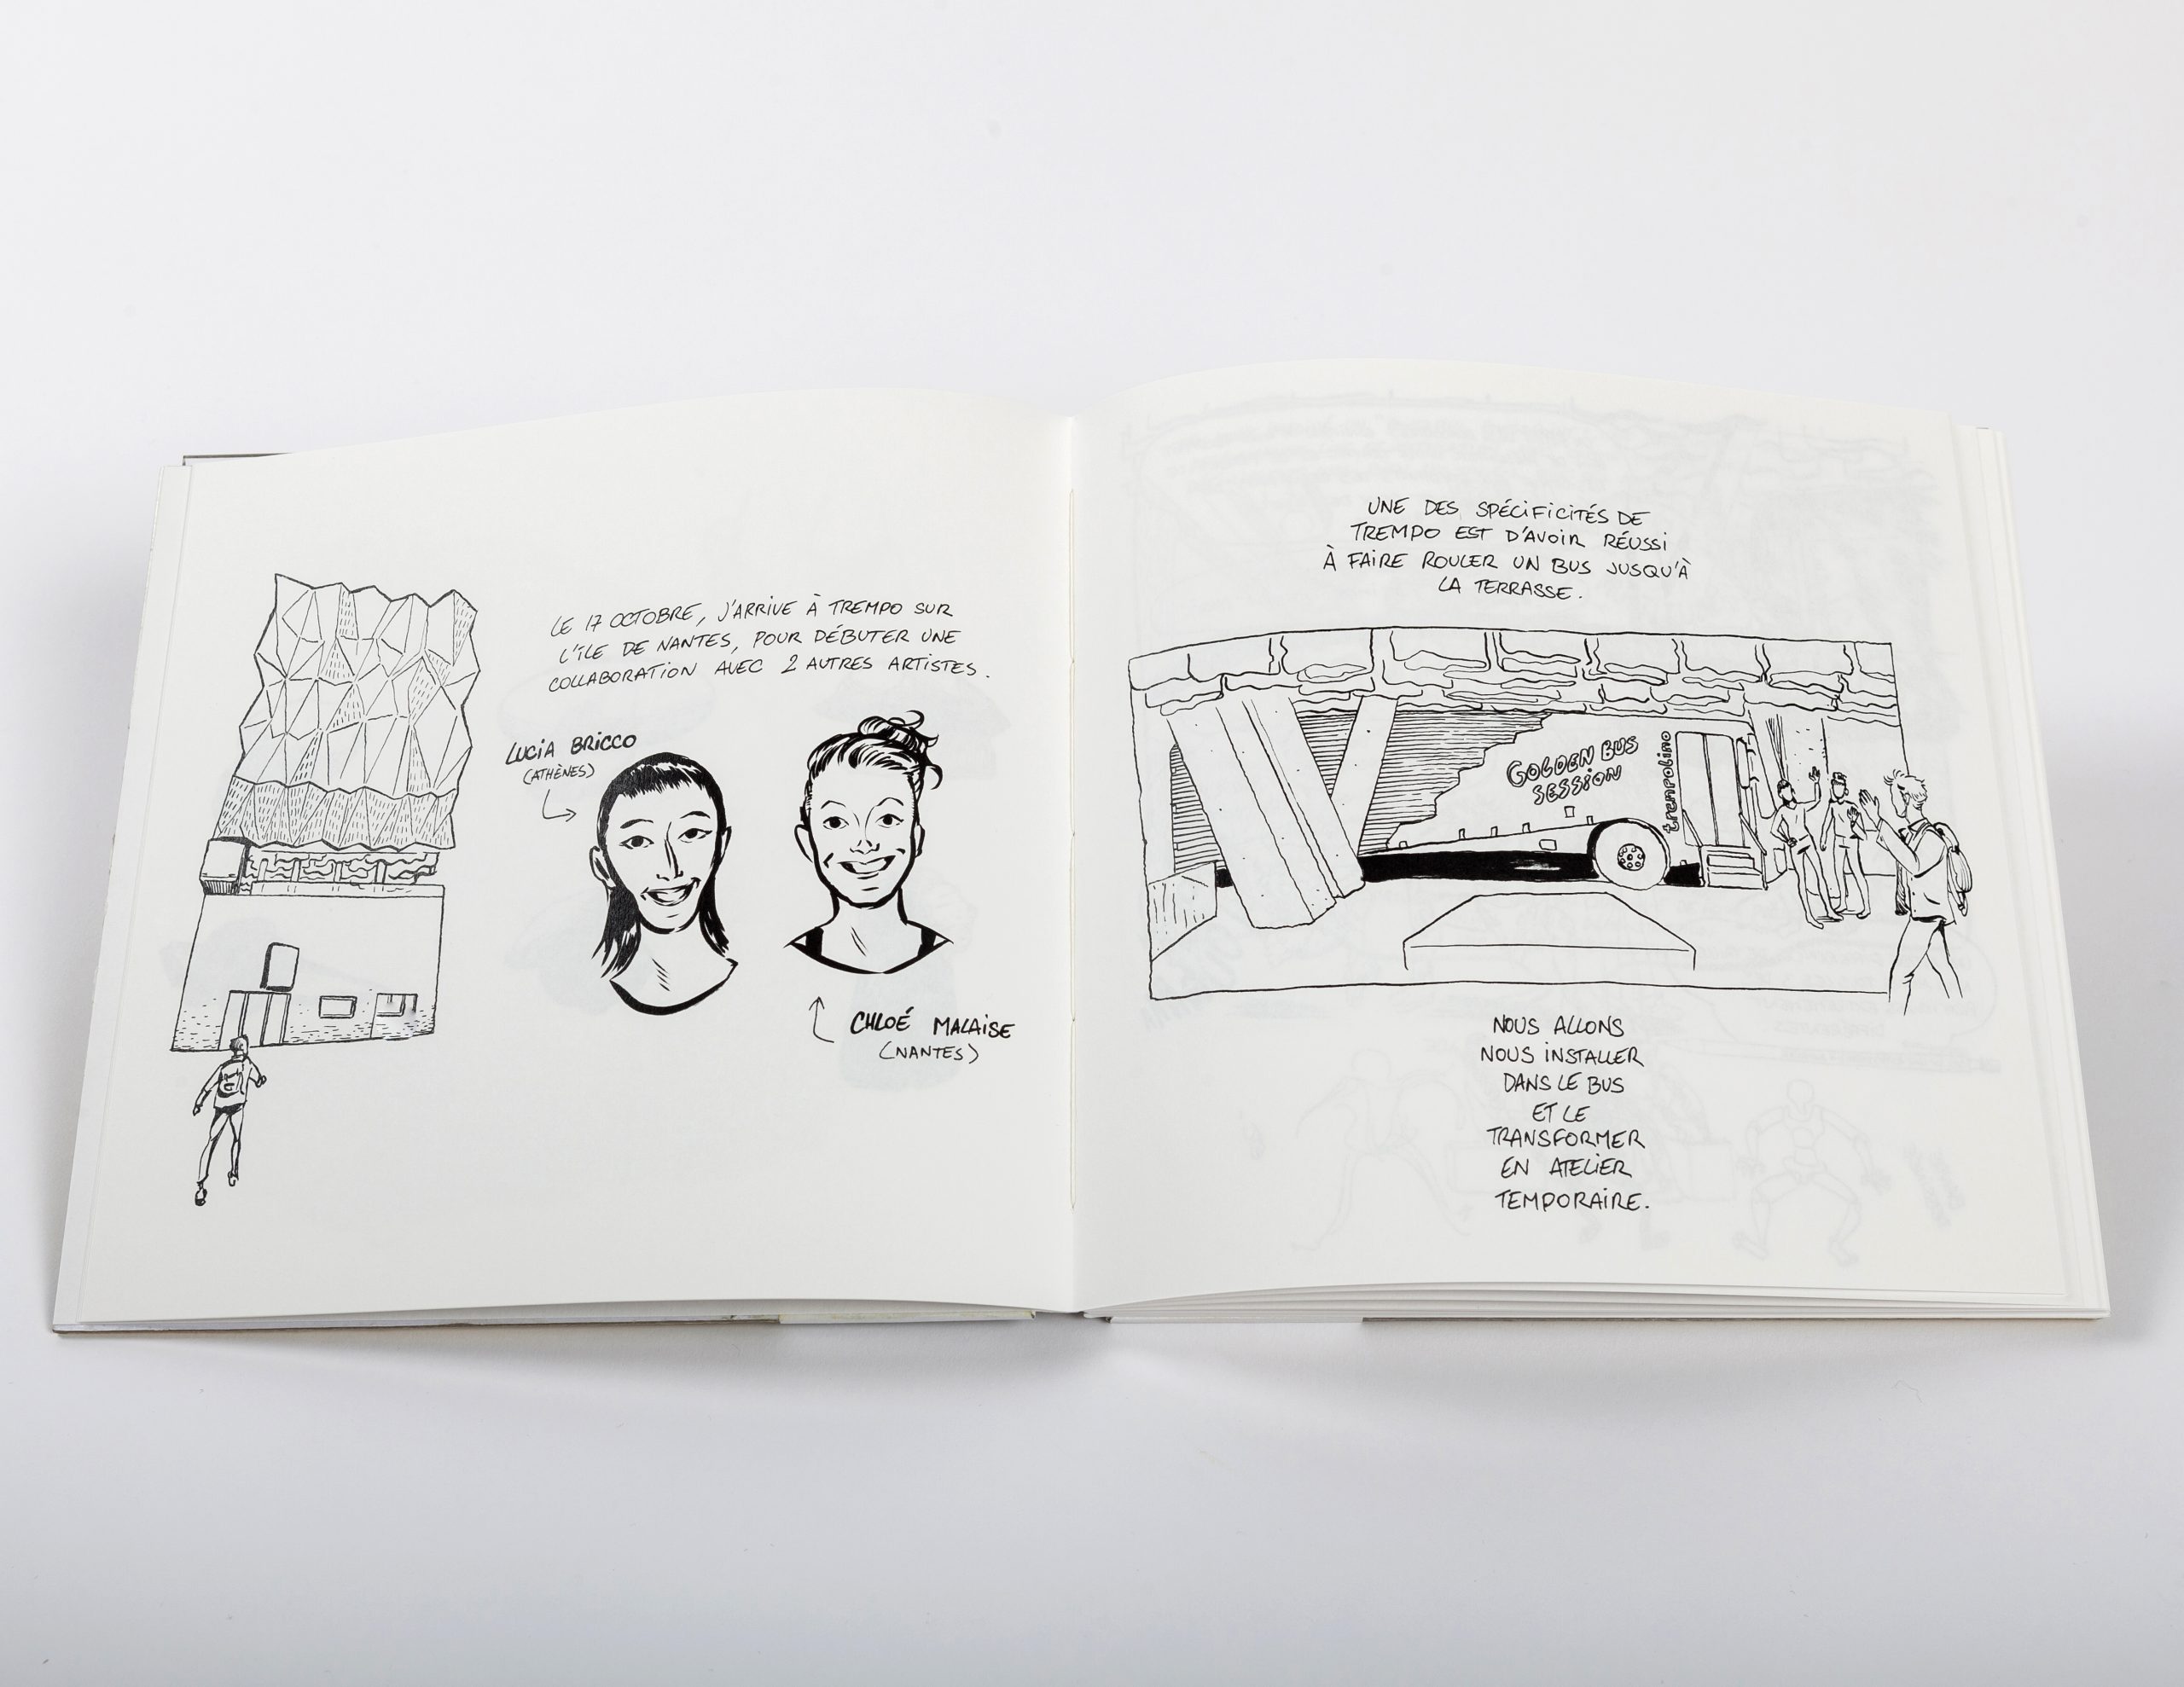 LE 17 OCTOBRE, J'ARRIVE À TREMPO SUR
L'ÎLE DE NANTES, POUR DÉBUTER UNE
COLLABORATION AVEC 2 AUTRES ARTISTES.
LUCIA BRICCO
(ATHÈNES)
CHLOÉ MALAISE
(NANTES)
UNE DES SPÉCIFICITÉS DE
TREMPO EST D'AVOIR RÉUSSI
À FAIRE ROULER UN BUS JUSQU'À
LA TERRASSE.
GOLDEN BUS
SESSION
trempolino
NOUS ALLONS
NOUS INSTALLER
DANS LE BUS
ET LE
TRANSFORMER
EN ATELIER
TEMPORAIRE.